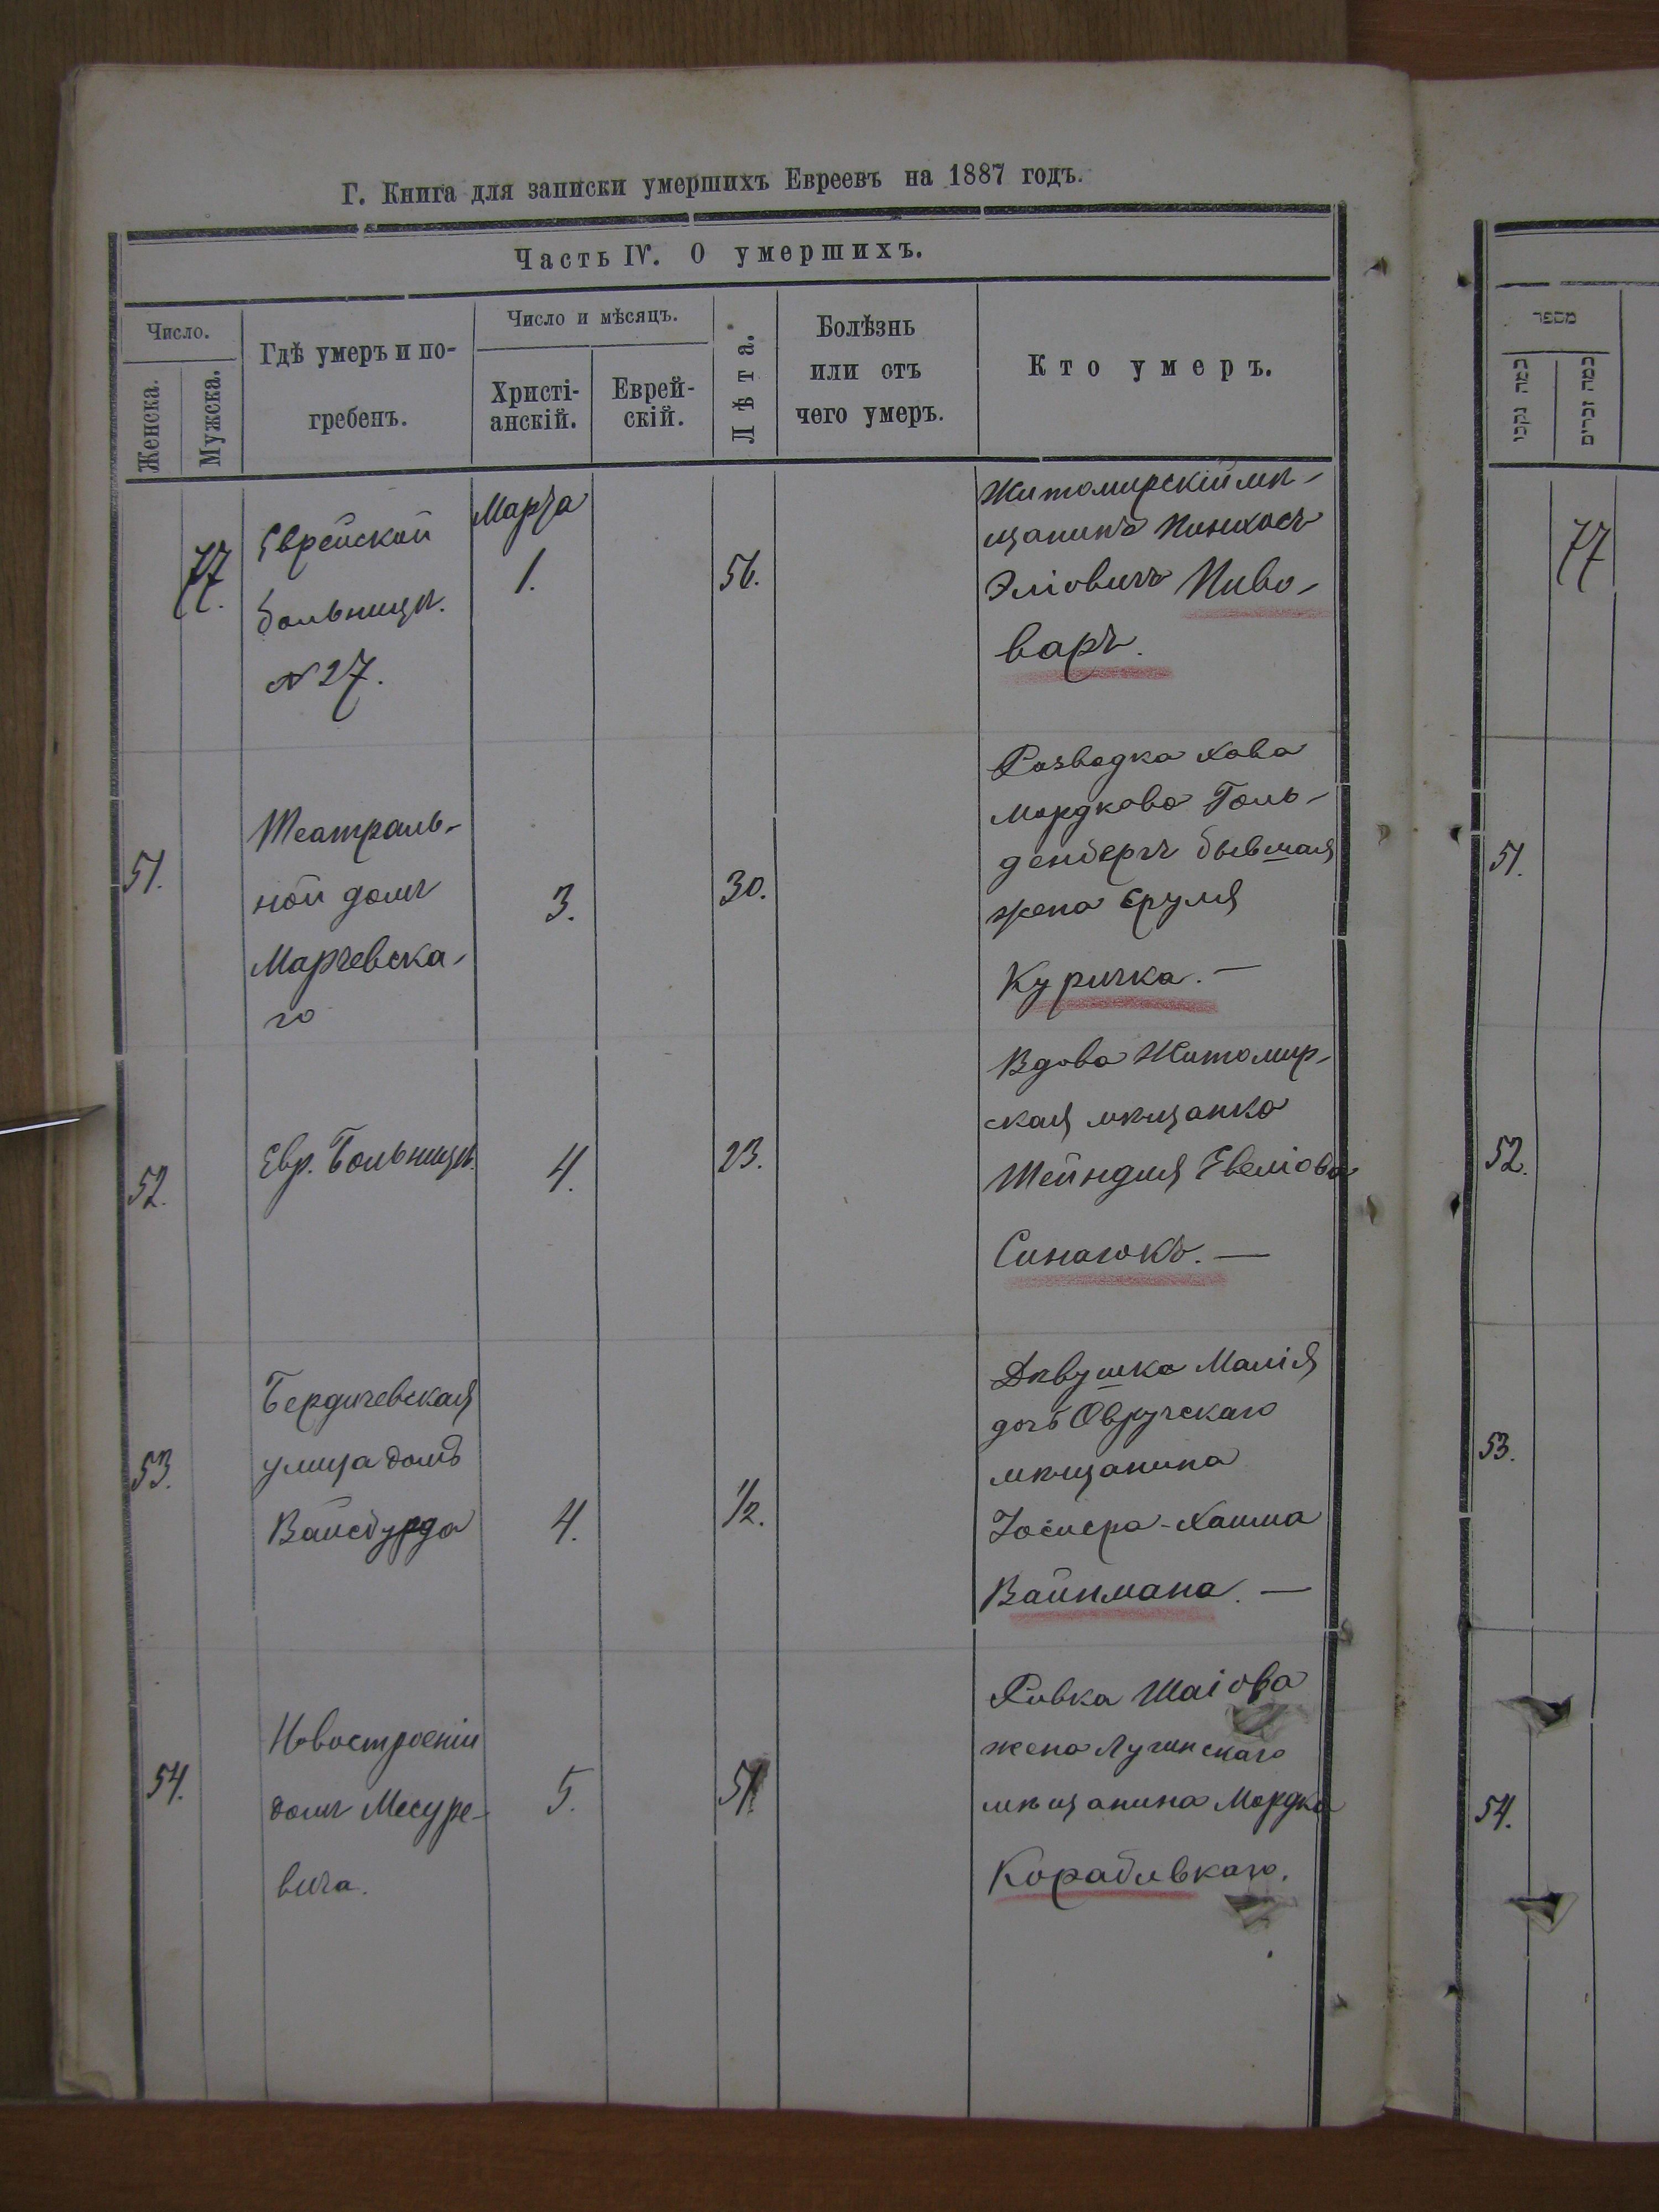 Г. Книга для записки умершихъ Евреевъ на 1887 годъ.
Часть IV. О умершихъ.
Число.
Женска.
Мужска.
Гдѣ умеръ и по-
гребенъ.
Число и мѣсяцъ.
Христі-
анскій.
Еврей-
скій.
Лѣта.
Болѣзнь
или отъ
чего умеръ.
Кто умеръ.
77.
Еврейской
больницѣ.
№ 27.
Марта
1.
56.
Житомирскій мѣ-
щанинъ Пинхосъ
Эліовичъ Пиво-
варъ.
51.
Театраль-
ной домъ
Марчевска-
го
3.
30.
Розводка Хава
Мордкова Голь-
денберъ бывшая
жена Сруля
Куричка. —
52.
Евр. Больницѣ.
4.
23.
Вдова Житомир-
ская мѣщанка
Шейндля Евеліова
Синаюкъ. —
53.
Бердичевская
улица домъ
Вайсбурда
4.
1/2.
Дѣвушка Малія
дочь Овручскаго
мѣщанина
Хаима
Вайнмана. —
54.
Новостроеніи
домъ Месуре-
вича.
5.
51
Ривка Шаіова
жена Лугинскаго
мѣщанина Мордка
Кораблвкаго.
מספר
כמה נקבו
כמה זכרים
77
51.
52.
53.
54.